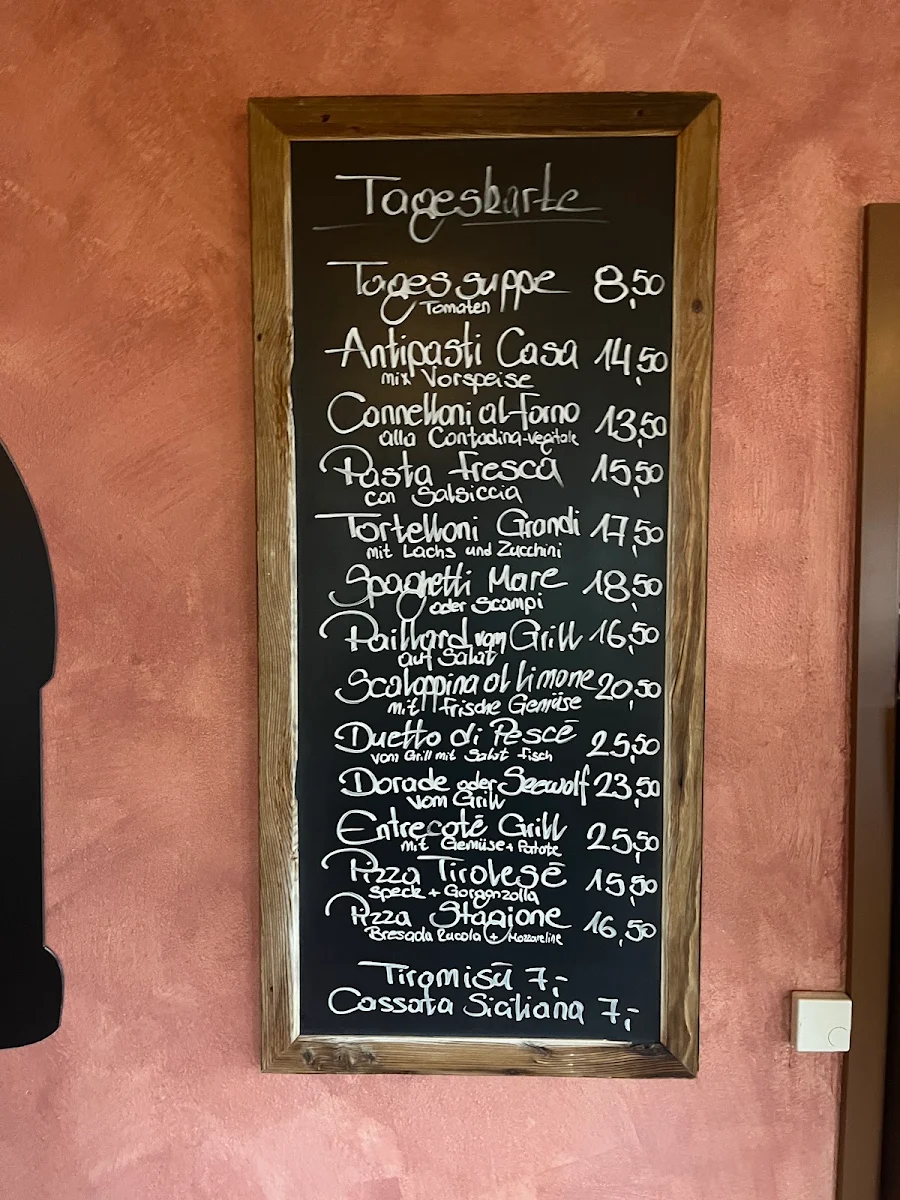 Tageskarte
Tagessuppe 8,50
Tomaten
Antipasti Casa 14,50
mix Vorspeise
Connelloni al forno 13,50
alla Contadina-vegitale
Pasta fresca 15,50
con Salsiccia
Tortelloni Grandi 17,50
mit Lachs und Zucchini
Spaghetti Mare 18,50
oder Scampi
Paillard vom Grill 16,50
auf Salat
Scaloppina al limone 20,50
mit frische Gemüse
Duetto di Pesce 25,50
vom Grill mit Salat fisch
Dorade oder Seewolf 23,50
vom Grill
Entrecoté Grill 25,50
mit Gemüse + Patate
Pizza Tirolese 15,50
Speck + Gorgonzolla
Pizza Stagione 16,50
Bresada Rucola + Mozzareline
Tiramisú 7,-
Cassata Siciliana 7,-